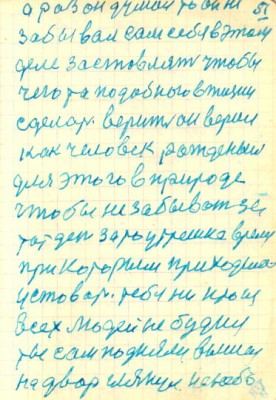 а раз он думал то он н 51
забывал сам себя в этом
деле заставлят чтобы
чегота подобного в тиции
сделат. верит ли он верил
как человек рожденый
для этого в природе
чтобы не забыват за
тот ден за то утрешка время
при котором приходица
устават. тебя ни кроме
всех людей не будил
ты сам поднялся вышел
на двор глянул на небо